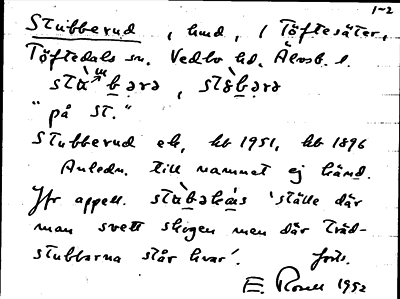 1-2
Stubberud, hmd, i Töftesäter,
Töftedals sn. Vedbo hd. Älvsb. l.
stùbərə, stöbərə
"på St."
Stubberud ek, kb 1951, kb 1896
Anledn. till namnet ej känd.
Jfr appell. stùbəhás 'ställe där
man svett skogen men där träd-
stubbarna står kvar'. forts.
E. Rosell 1952